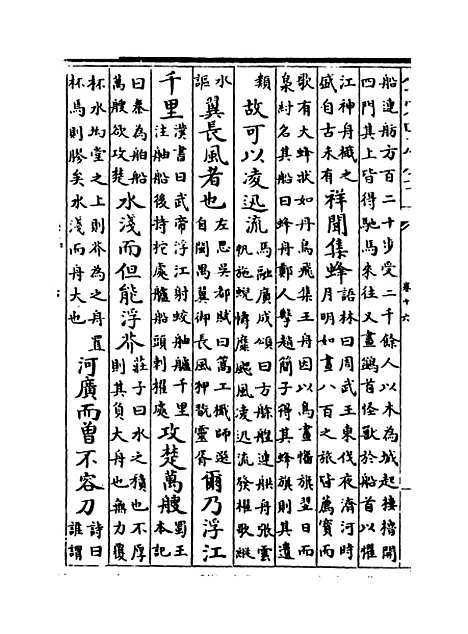 船連舫方百二十步受二千餘人以木為城起樓櫓開
四門其上皆得馳馬來往又畫鷁首怪獸於船首以懼
江神舟檝之
盛自古未有
祥聞集蜂
語林曰周武王東伐夜濟河時
月明如晝八百之旅皆薦寶而
歌有大蜂狀如丹鳥飛集王舟因以鳥畫幡旗翌日而
梟紂名其船曰蜂舟鄭人擊趙簡子得其蜂旗則其遺
類
故可以凌迅流
馬融廣成頌曰方艅艎連舼舟張雲
帆施蜺幬靡颸風凌迅流發櫂歌縱
水
謳
翼長風者也
左思吳都賦曰萬工檝師選
自閩禺翼御長風狎翫靈胥
爾乃浮江
千里
漢書曰武帝浮江射蛟舳艫千里
注舳船後持柁處艫船頭刺櫂處
攻楚萬艘
蜀王
本記
曰秦為舶船
萬艘欲攻楚
水淺而但能浮芥
莊子曰水之積也不厚
則其負大舟也無力覆
杯水坳堂之上則芥為之舟置
杯焉則膠矣水淺而舟大也
河廣而曾不容刀
詩曰
誰謂
卷十六